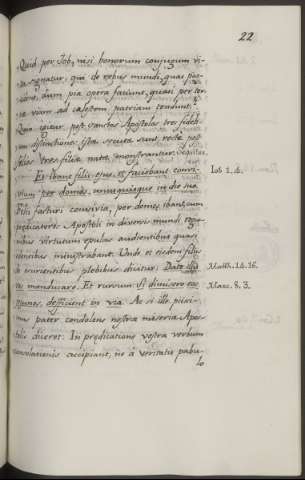 22
Quid per Job, nisi honorum conjugum vi-
ta signatur, qui de rebus mundi, quas pos-
sident, dum pia opera faciunt, quasi per ter-
ræ viam ad cælestem patriam tendunt.
Quia igitur post sanctos Apostolos tres fideli-
um distinctiones istæ secutæ sunt recte post
filios tres filiæ natæ monstrantur.
Et ibant filii ejus, et faciebant convi-
vium per domos, unusquisque in die suo.
Iob 1. 4.
Filii facturi convivia, per domos ibant, cum
prædicatores Apostoli in diversis mundi regio-
nibus virtutum epulas audientibus quasi
edentibus ministrabant. Unde et eisdem filiis
de esurientibus plebibus dicitur. Date illis
vos manducare. Et rursum Si dimisero eos
Matth. 14. 16.
jejunos, deficient in via. Ac si ille piissi-
Marc. 8. 3.
mus pater condolens nostræ miseriæ Apos-
tolis diceret. In prædicatione vestra verbum
consolationis accipiant, ne a veritatis pabu-
lo